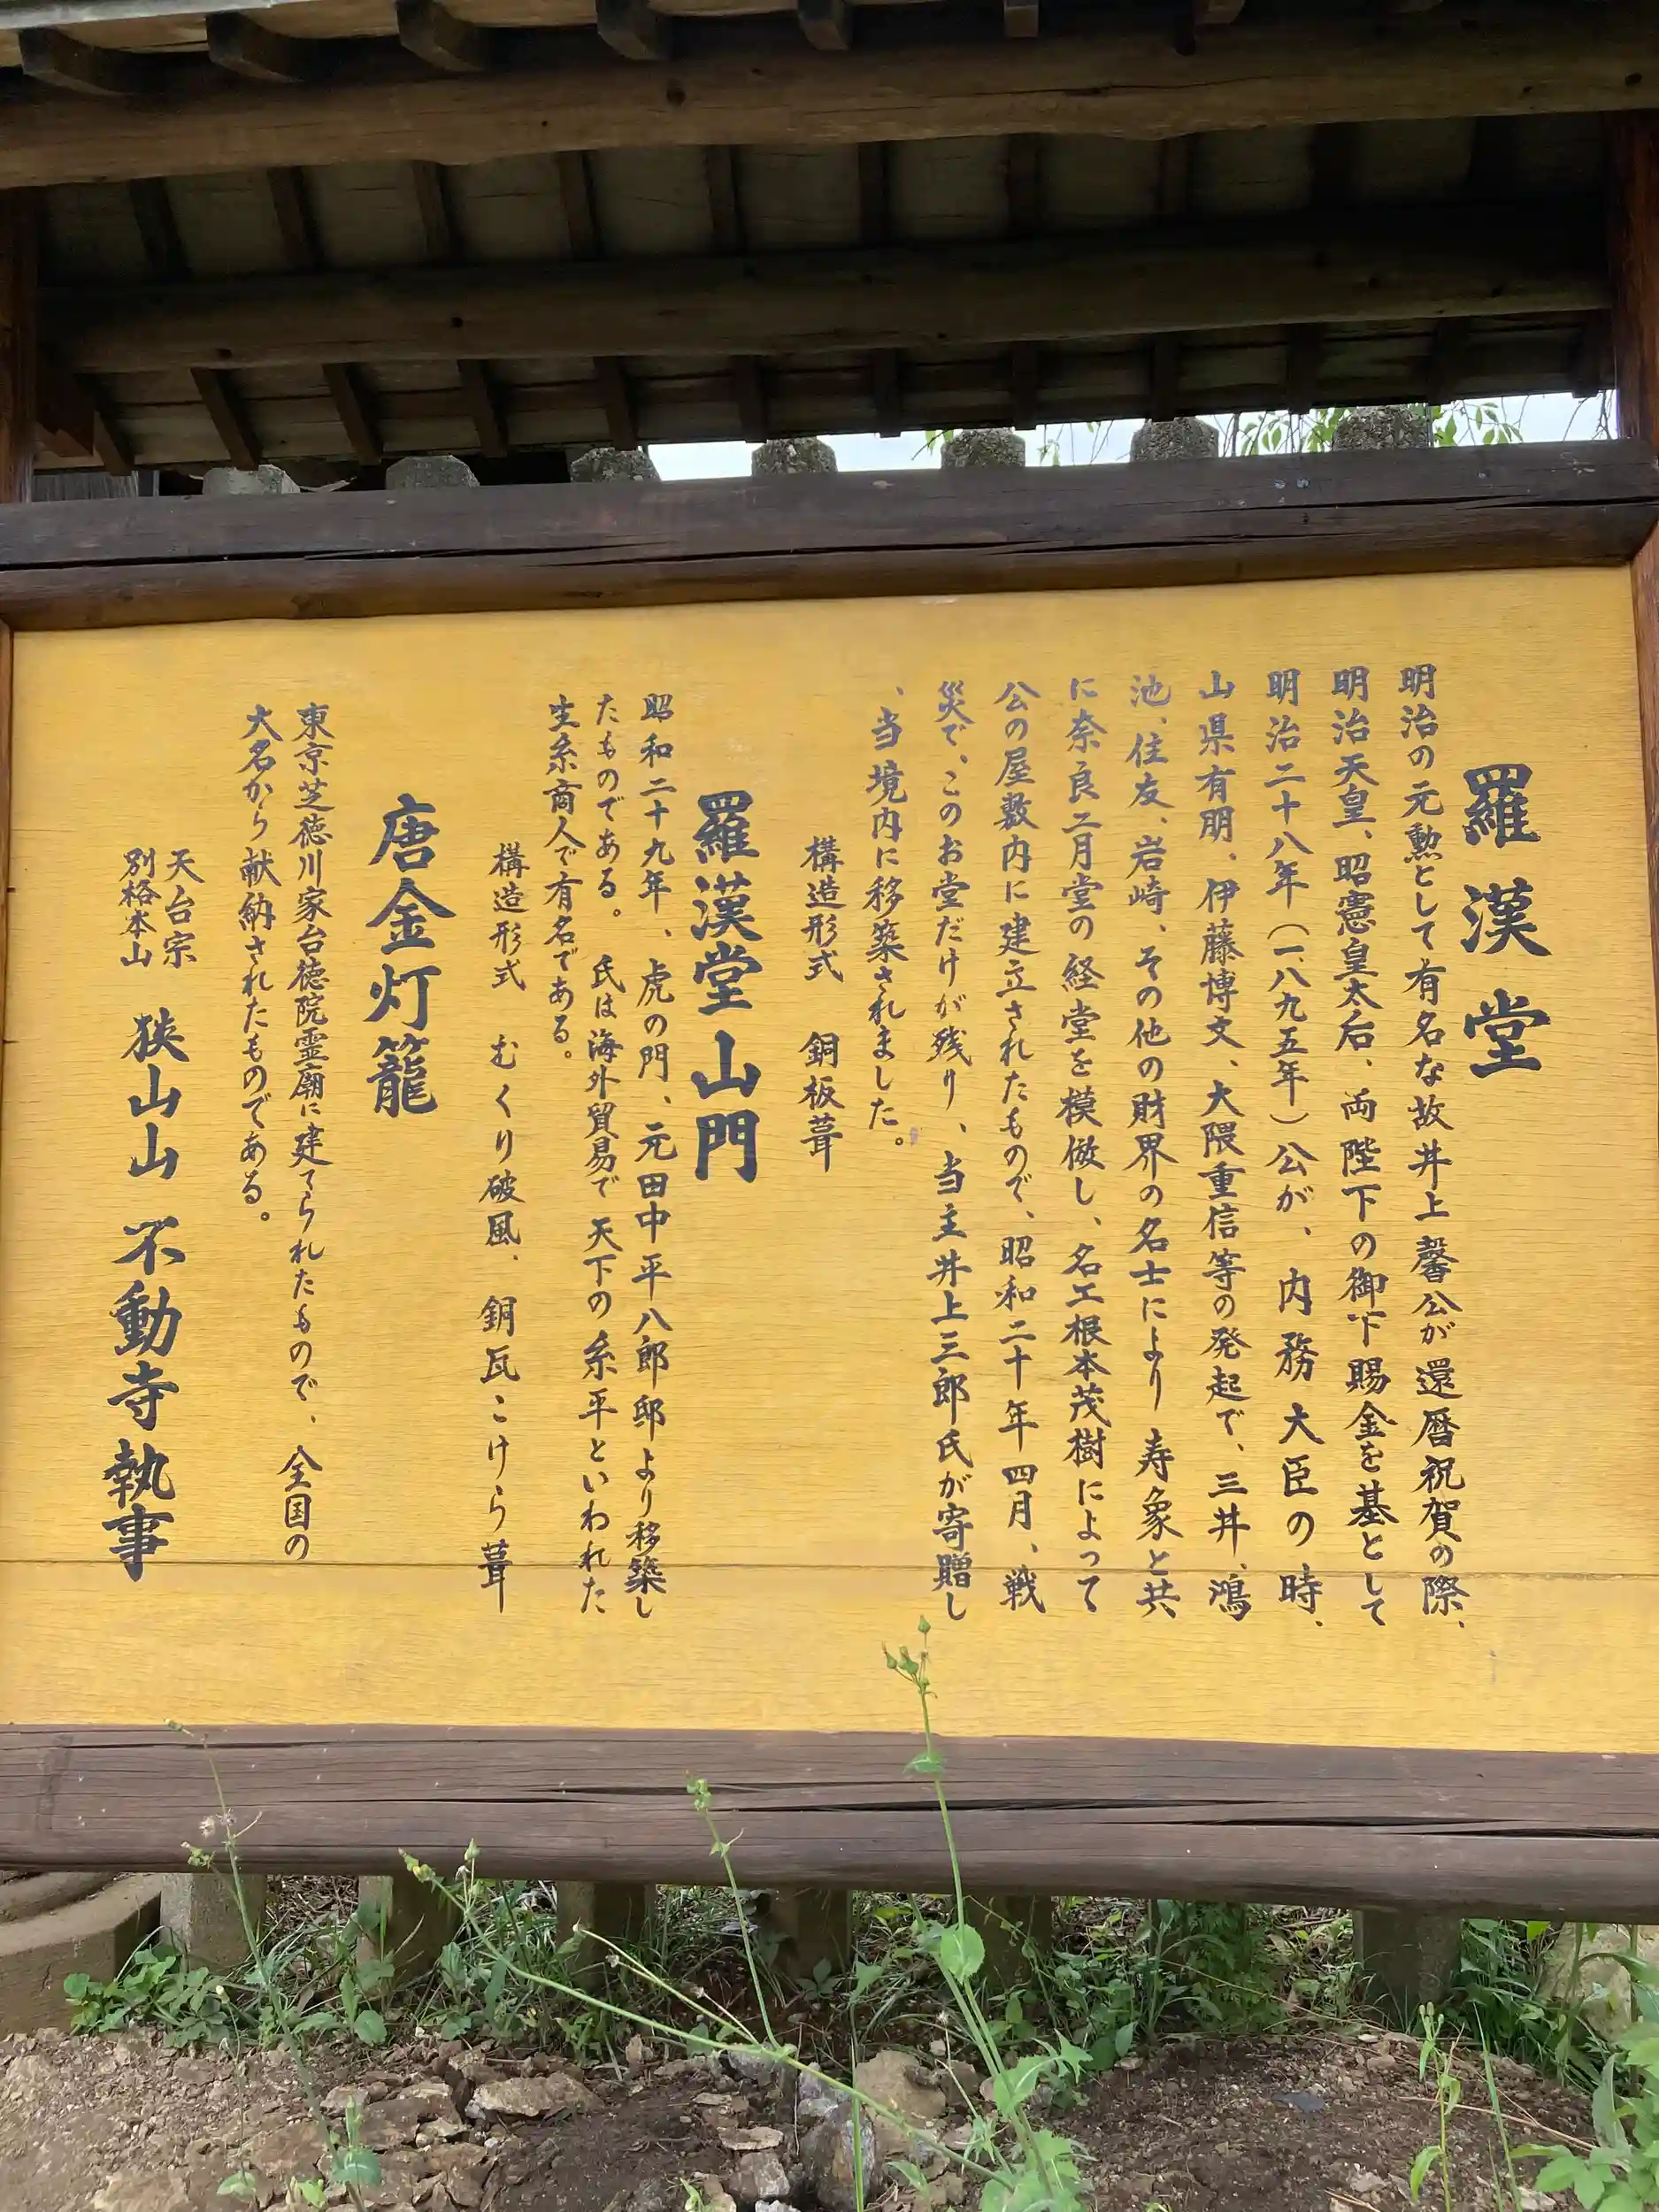 羅漢堂
明治の元勲として有名な故井上馨公が還暦祝賀の際、
明治天皇、昭憲皇太后、両陛下の御下賜金を基として
明治二十八年(一八九五年)公が、内務大臣の時、
山県有朋、伊藤博文、大隈重信等の発起で、三井、鴻
池、住友、岩崎、その他の財界の名士により寿象と共
に奈良二月堂の経堂を模倣し、名工根本茂樹によって
公の屋敷内に建立されたもので、昭和二十年四月、戦
災で、このお堂だけが残り、当主井上三郎氏が寄贈し
、当境内に移築されました。
構造形式 銅板葺
羅漢堂山門
昭和二十九年、虎の門、元田中平八郎邸より移築し
たものである。氏は海外貿易で天下の糸平といわれた
生糸商人で有名である。
構造形式 むくり破風、銅瓦こけら葺
唐金灯籠
東京芝徳川家台徳院霊廟に建てられたもので、全国の
大名から献納されたものである。
天台宗
別格本山
狭山山 不動寺執事